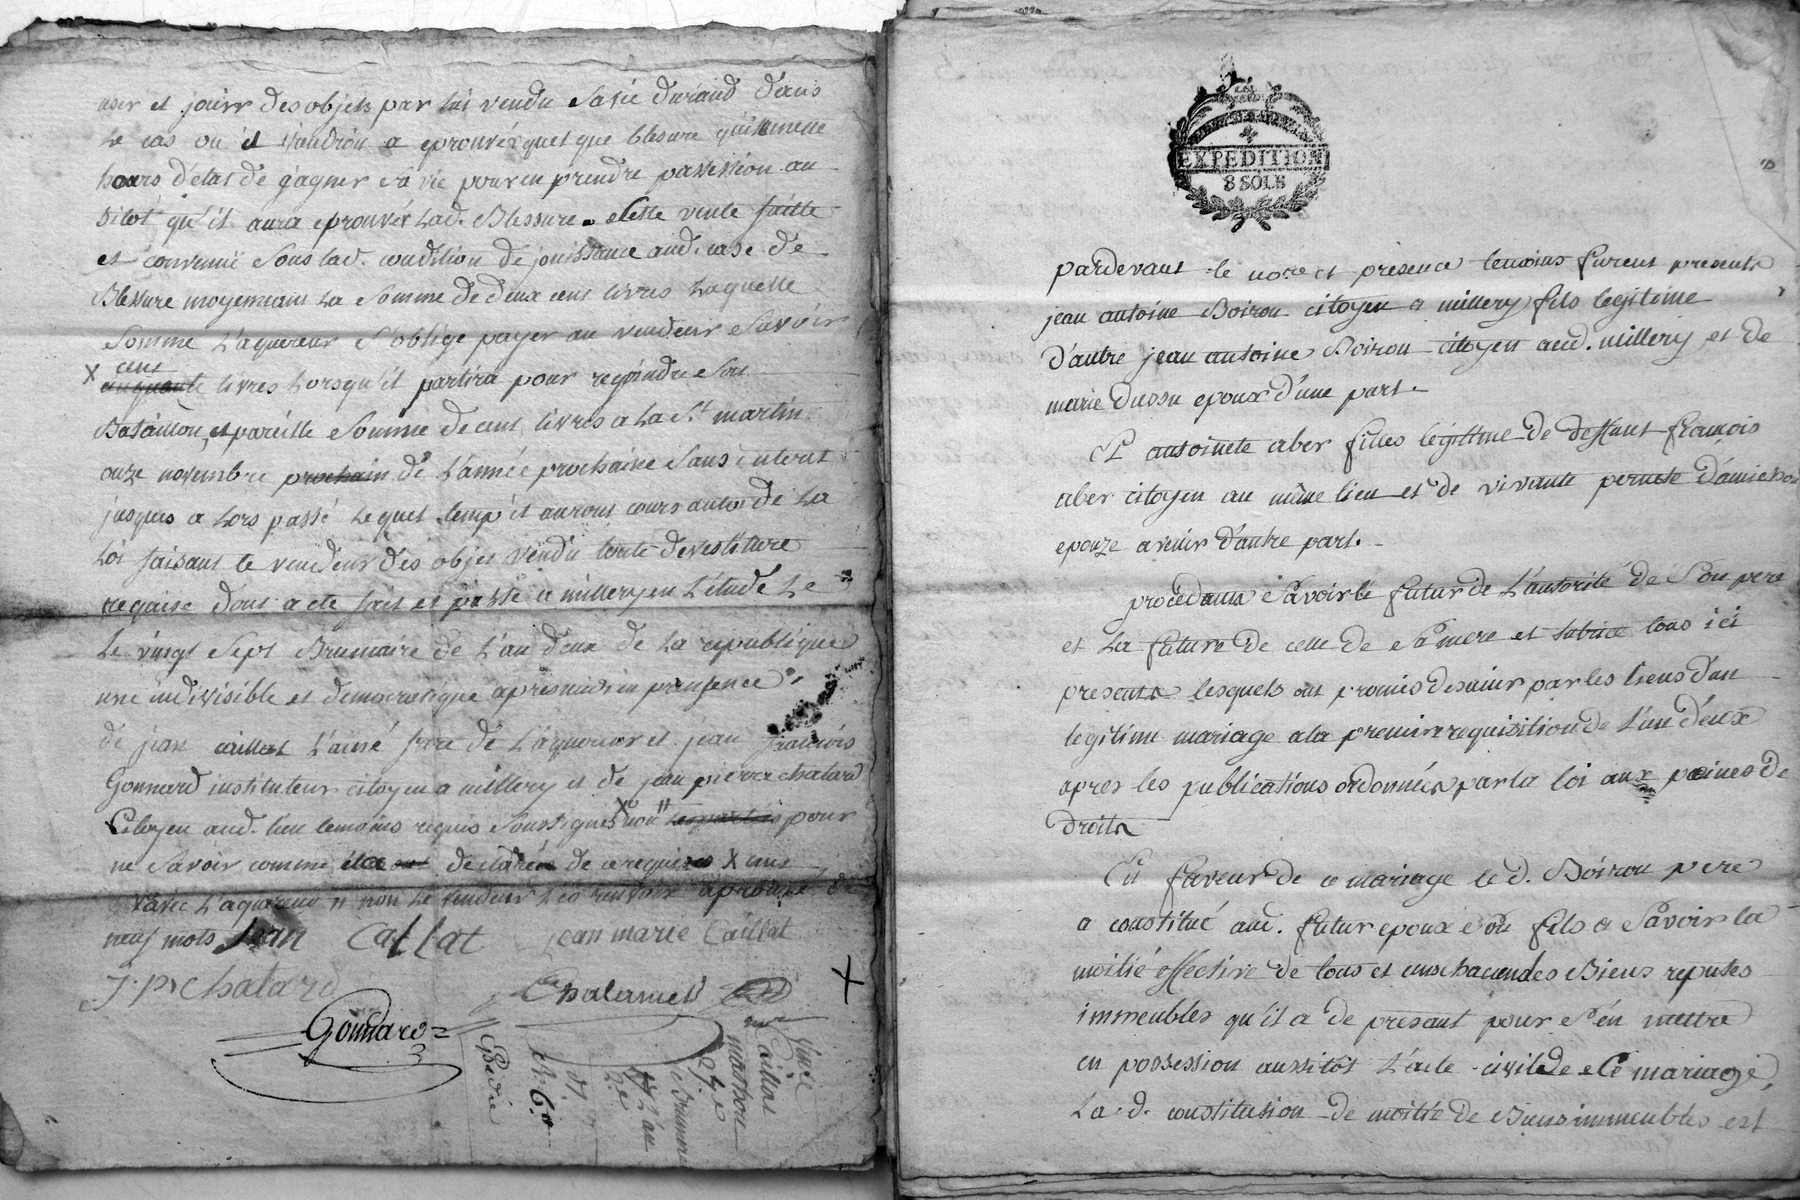 user et jouir des objets par lui vendu Savié durand dans
Le cas ou il viendrou a eprouver quelque blesure qui le mette
hoors d'etat de gagner sa vie pour en prendre possession au
sitot qu'il aura eprouvér Lad. Blessure. Cette vente faitte
et convenue Sous lad. condition de jouissance aud. case de
Blessure moyennant La Somme de deux cent livres Laquelle
Somme L'aquereur S'oblige payer au vendeur Savoir
X cent
cinquante livres Lorsqu'il partira pour rejoindre Son
Bataillon, et pareille Somme de cent livres a La St martin
onze novembre prochain de L'année prochaine Sans interest
jusques a Lors passé Lequel temp il auront cours au to de La
Loi faisant le vendeur des objet vendu toute devestiture
requise dont acte fait et passé a millery en L'étude Le
Le vingt Sept Brumaire de L'an deux de La republique
une indivisible et democratique apres midi en presence
de jean caillat L'ainé frere de L'aquereur et jean francois
Gonnard instituteur citoyen a millery et de jean pierre chatard
Citoyen aud. lieu temoins requis Soussignés X non les parties pour
ne Savoir comme declarée de ce requises X
X avec L'aquereur non le vendeur aprouvé de
neuf mots Jean Callat jean marie Caillat
J. P. chatard Chalamel
Gonnard
Expedié
6.
2.e
L'an
Brumaire
marbou
caillat
EXPEDITION
8 SOLS
pardevant le nore et presence temoins furent presents
jean antoine Boiron citoyen a millery fils legitime
d'autre jean antoine Boiron citoyen aud. millery et de
marie Dussu epoux d'une part.
Et antoinete aber filles legitime de deffunt francois
aber citoyen au même lieu et de vivante pernete
epouze a venir d'autre part.
procedants Savoir le futur de L'autorité de Son pere
et La future de celle de Sa mere et tutrice tous ici
presants lesquels ont promis de s'unir par les liens d'un
legitime mariage a la premiere requisition de l'un d'eux
apres les publications ordonnées par la loi aux peines de
droits
En faveur de ce mariage le d. Boiron pere
a constitué aud. futur epoux Son fils a Savoir la
moitié effective de tous et uns chacun des Biens reputes
immeubles qu'il a de presant pour s'en mettre
en possession aussitôt L'acte civil de Ce mariage,
La d. constitution de moitié de Biens immeubles est